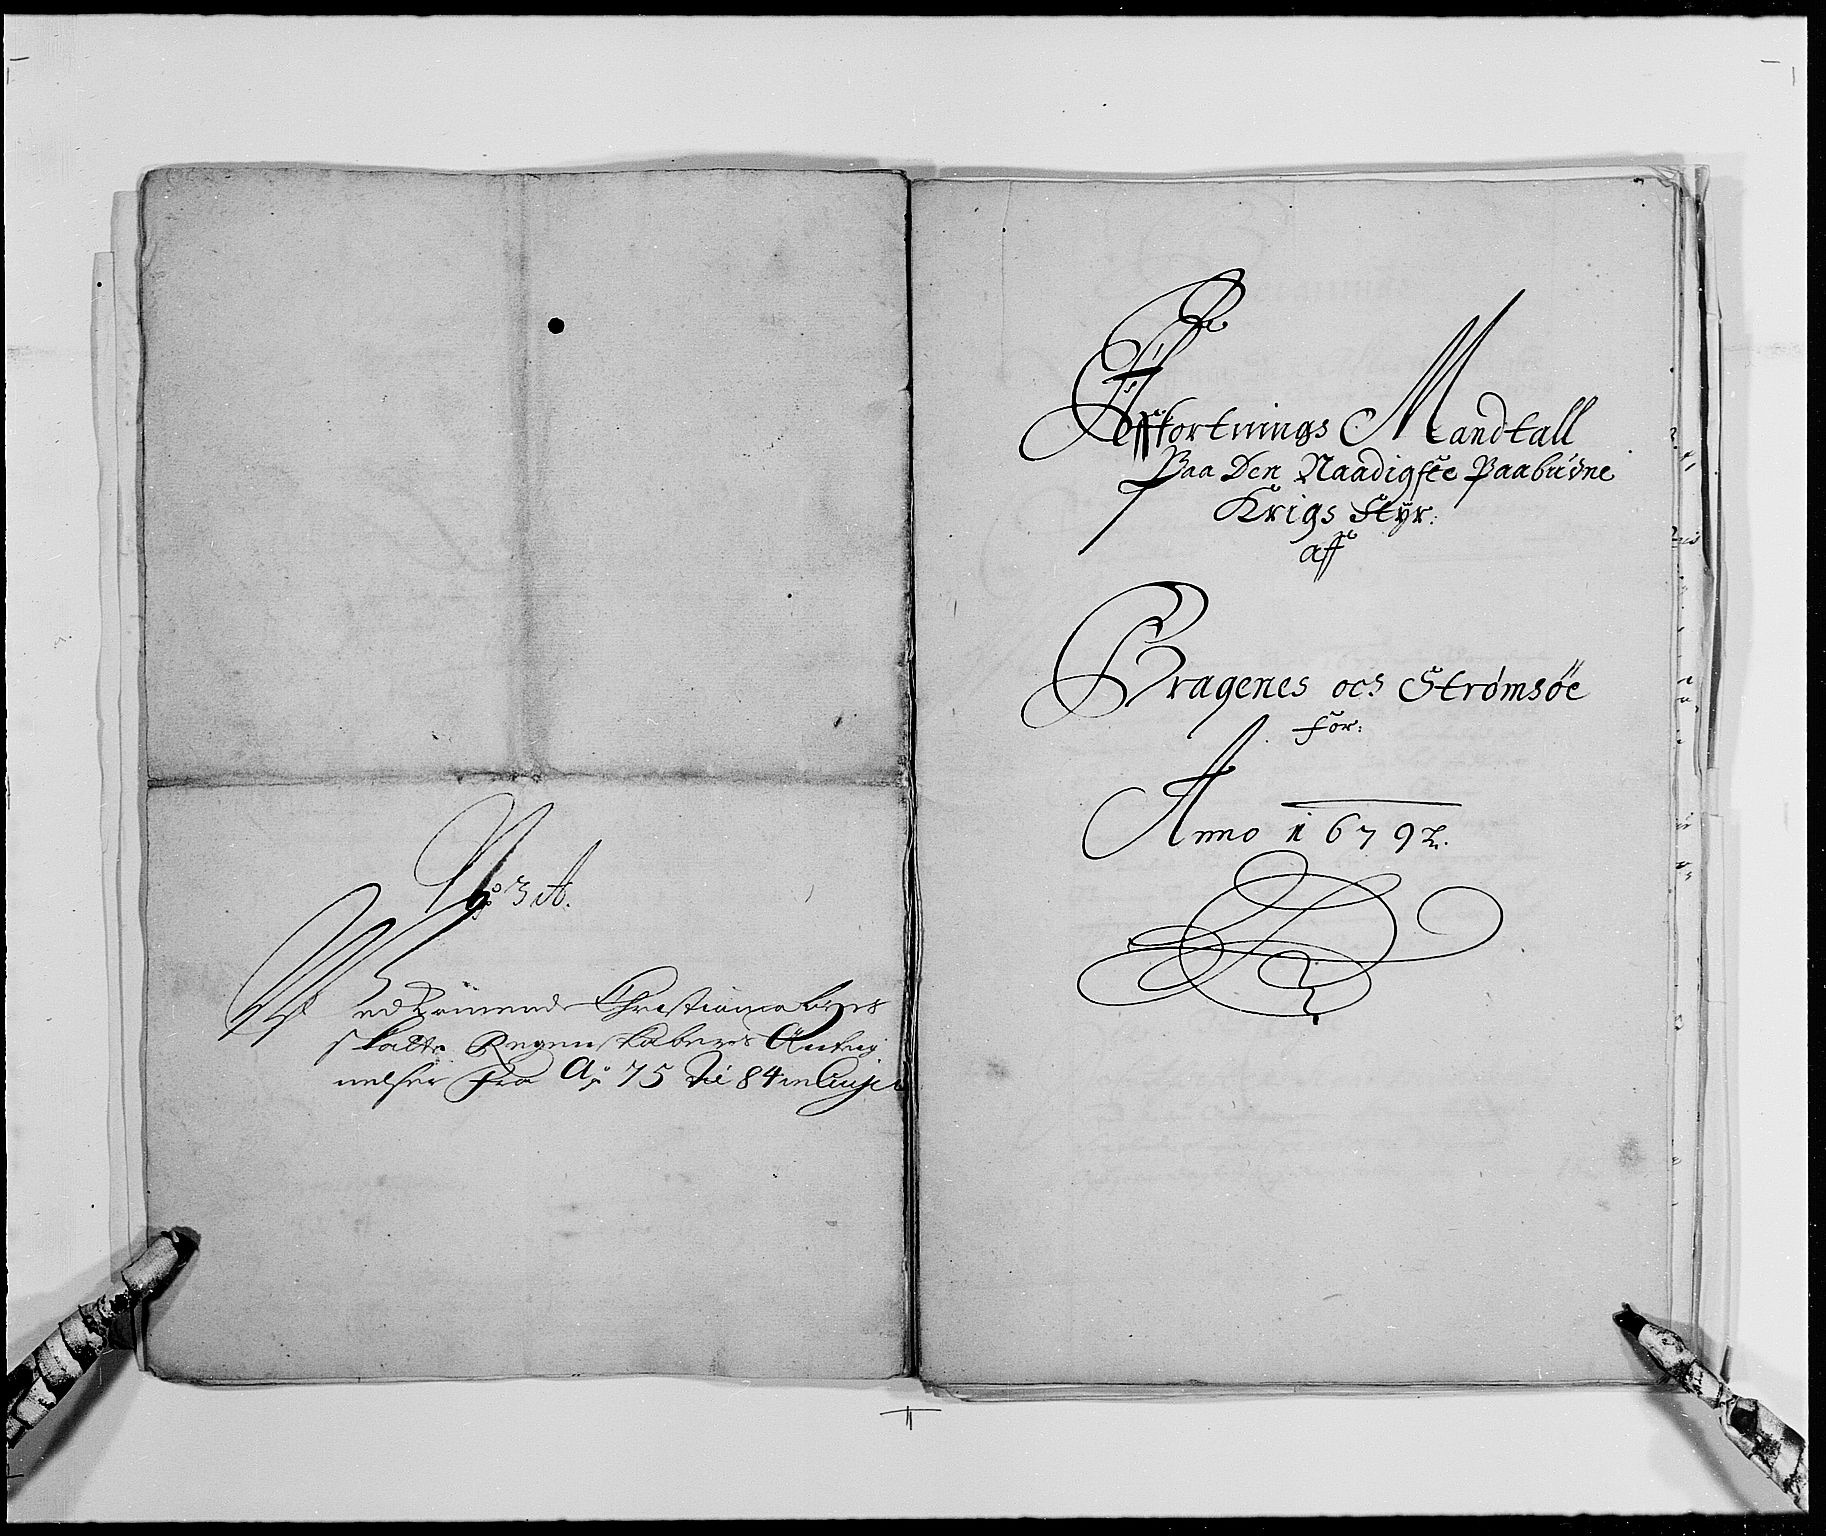 No 3 A.
Vedkommende Christiania Byes
skatte Regenskabers Anteg
nelser Fra Ao 75 til 84 inclusive
Affkortnings Mandtall
Paa Den Naadigste Paabudne
Krigs Styr:
aff
Bragenes och Strømsøe
for:
Anno 1679